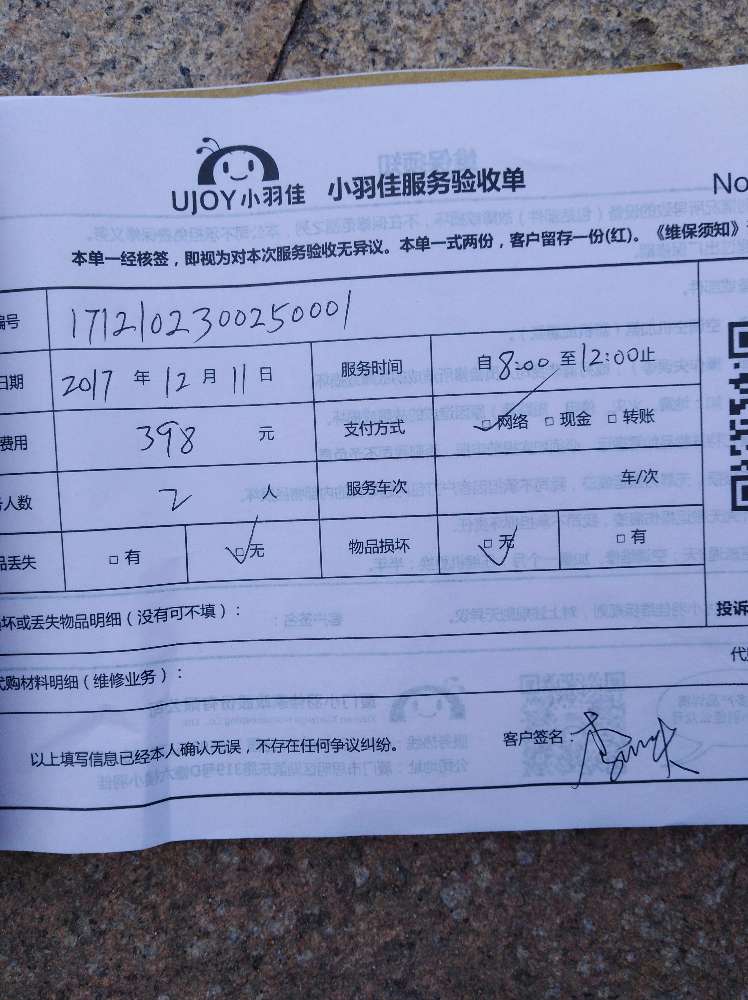 UJOY小羽佳 小羽佳服务验收单
No
本单一经核签，即视为对本次服务验收无异议。本单一式两份，客户留存一份(红)。《维保须知》
编号 1712102300250001
日期 2017 年 12 月 11 日 服务时间 自8:00至12:00止
费用 398 元 支付方式 □网络 □现金 □转账
人数 2 人 服务车次 车/次
品丢失 □有 □无 物品损坏 □无 □有
坏或丢失物品明细（没有可不填）：
投诉
代购材料明细（维修业务）：
代
以上填写信息已经本人确认无误，不存在任何争议纠纷。 客户签名：